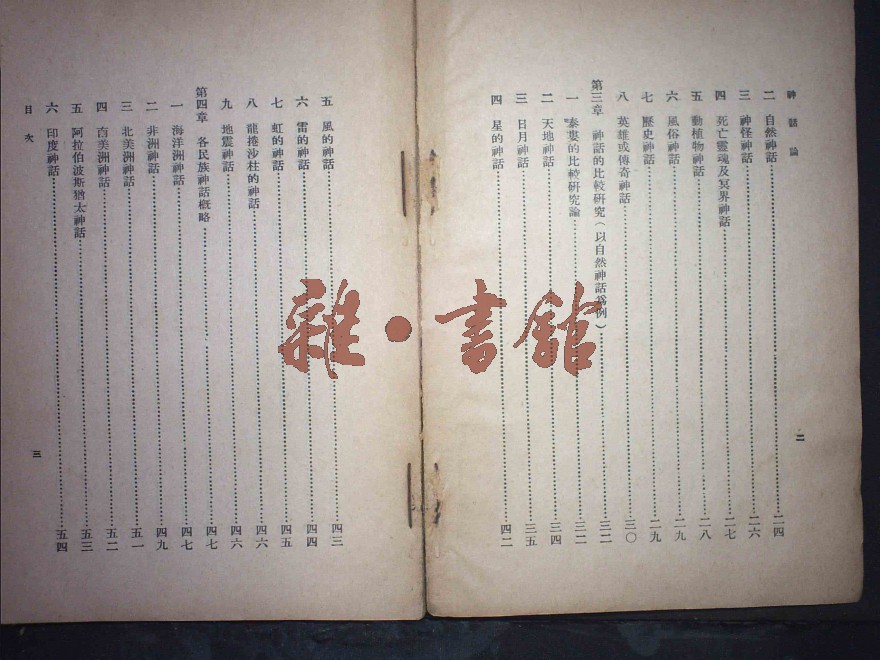 神話論
二 自然神話……二四
三 神怪神話……二六
四 死亡靈魂及冥界神話……二七
五 動植物神話……二八
六 風俗神話……二九
七 歷史神話……二九
八 英雄或傳奇神話……三〇
第三章 神話的比較研究(以自然神話爲例)……三二
一 泰婁的比較研究論……三二
二 天地神話……三四
三 日月神話……三五
四 星的神話……四二
二
五 風的神話……四三
六 雷的神話……四四
七 虹的神話……四五
八 龍捲沙柱的神話……四六
九 地震神話……四六
第四章 各民族神話概略……四七
一 海洋洲神話……四七
二 非洲神話……四九
三 北美洲神話……五一
四 南美洲神話……五二
五 阿拉伯波斯猶太神話……五三
六 印度神話……五四
目次
三
雜·書館